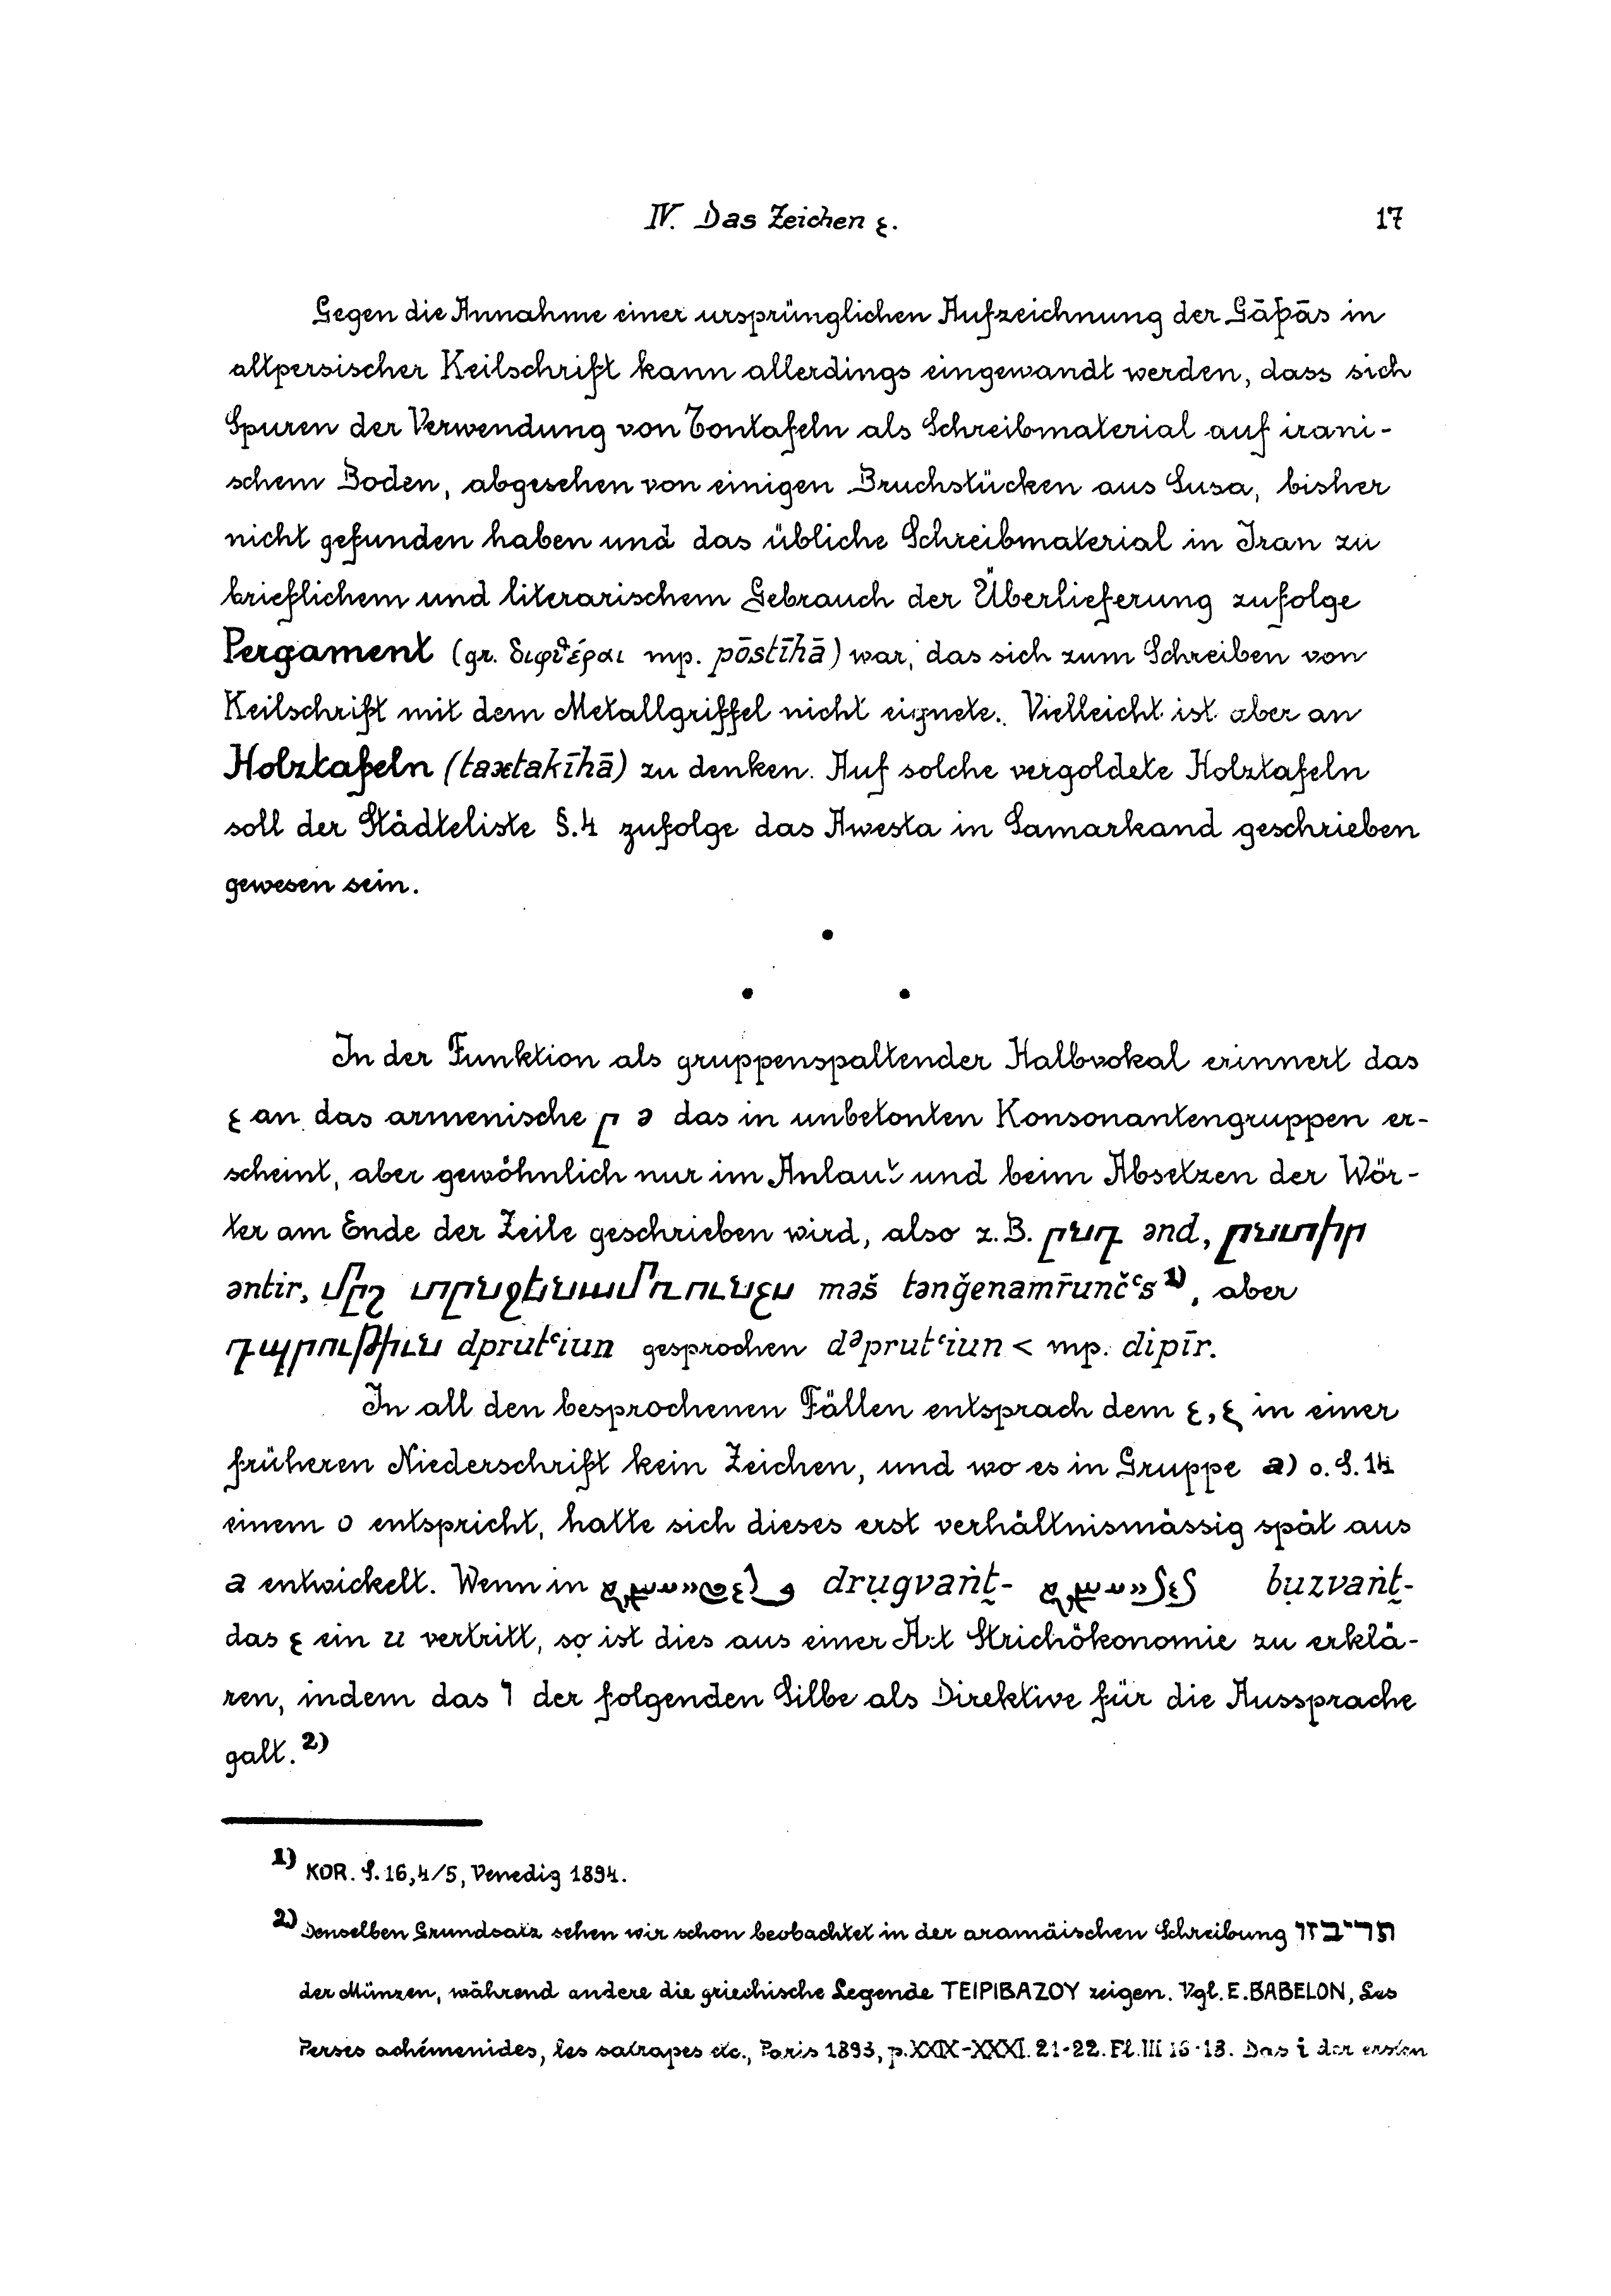 IV. Das Zeichen ε.
17
Gegen die Annahme einer ursprünglichen Aufzeichnung der Gāþās in
altpersischer Keilschrift kann allerdings eingewandt werden, dass sich
Spuren der Verwendung von Tontafeln als Schreibmaterial auf irani-
schem Boden, abgesehen von einigen Bruchstücken aus Susa, bisher
nicht gefunden haben und das übliche Schreibmaterial in Iran zu
brieflichem und literarischem Gebrauch der Überlieferung zufolge
Pergament (gr. διφθέραι mp. pōstīhā) war, das sich zum Schreiben von
Keilschrift mit dem Metallgriffel nicht eignete. Vielleicht ist aber an
Holztafeln (taxtakīhā) zu denken. Auf solche vergoldete Holztafeln
soll der Städteliste §.4 zufolge das Awesta in Samarkand geschrieben
gewesen sein.
In der Funktion als gruppenspaltender Halbvokal erinnert das
ε an das armenische ը ə das in unbetonten Konsonantengruppen er-
scheint, aber gewöhnlich nur im Anlaut und beim Absetzen der Wör-
ter am Ende der Zeile geschrieben wird, also z.B. ընդ ənd, ընտիր
əntir, մըշ տընջենամռունչս məš tənǧenamr̄unčʿs 1), aber
դպրութիւն dprutʿiun gesprochen dᵊprutʿiun < mp. dipīr.
In all den besprochenen Fällen entsprach dem ε, ξ in einer
früheren Niederschrift kein Zeichen, und wo es in Gruppe a) o. S. 14
einem o entspricht, hatte sich dieses erst verhältnismässig spät aus
a entwickelt. Wenn in drụgvaṅt̰- bụzvaṅt̰-
das ε ein u vertritt, so ist dies aus einer Art Strichökonomie zu erklä-
ren, indem das ו der folgenden Silbe als Direktive für die Aussprache
galt. 2)
1) KOR. S. 16,4/5, Venedig 1894.
2) Denselben Grundsatz sehen wir schon beobachtet in der aramäischen Schreibung תריבזו
der Münzen, während andere die griechische Legende ΤΕΙΡΙΒΑΖΟΥ zeigen. Vgl. E. BABELON, Les
Perses achéménides, les satrapes etc., Paris 1893, p. XXIX-XXXI. 21-22. Pl. III 16-18. Das i der ersten